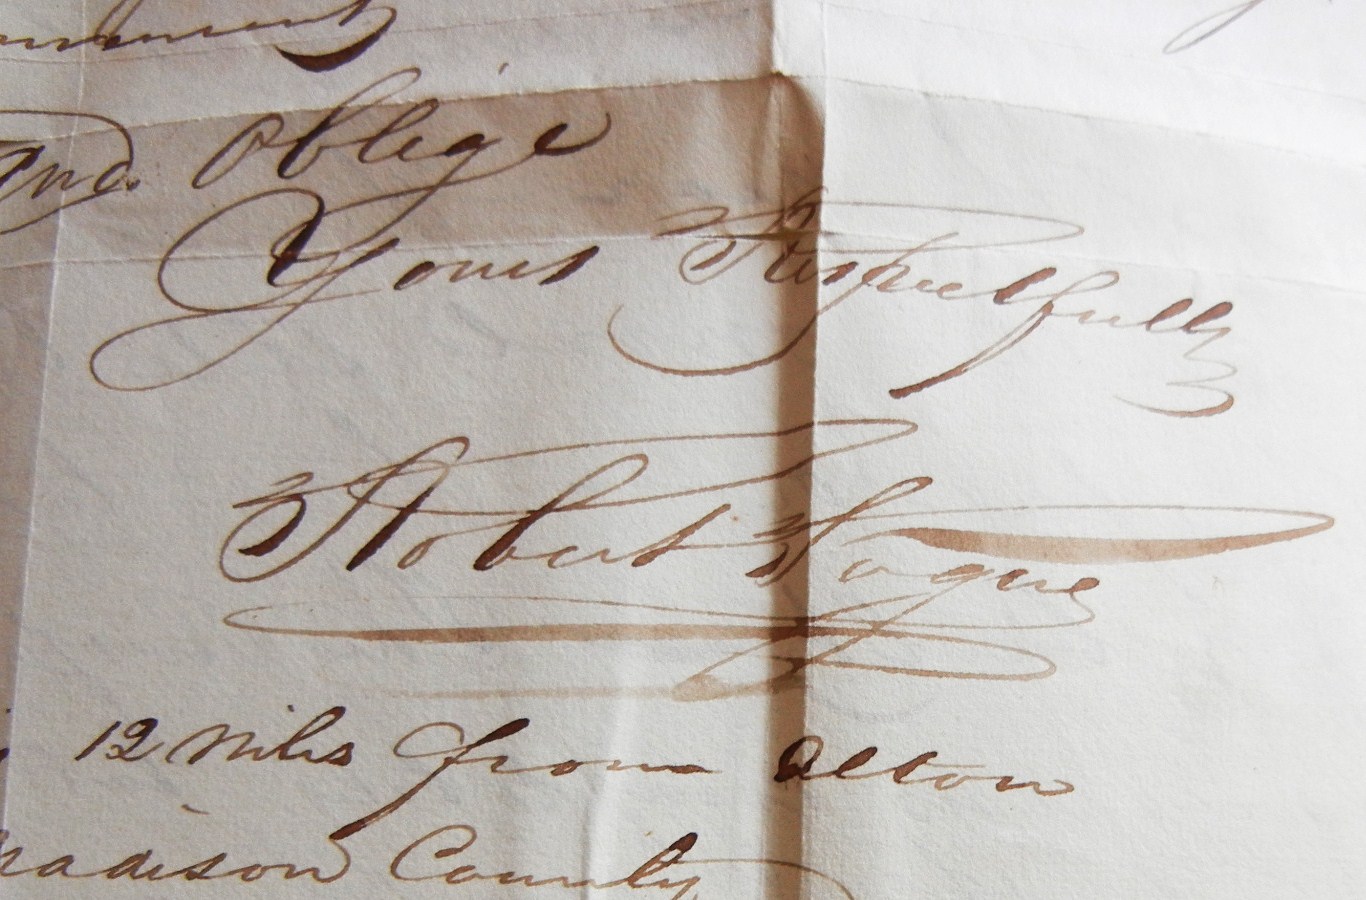 and. Oblege
Yours Respectfully
Robert Hogue
12 Miles from Alton
Madison County